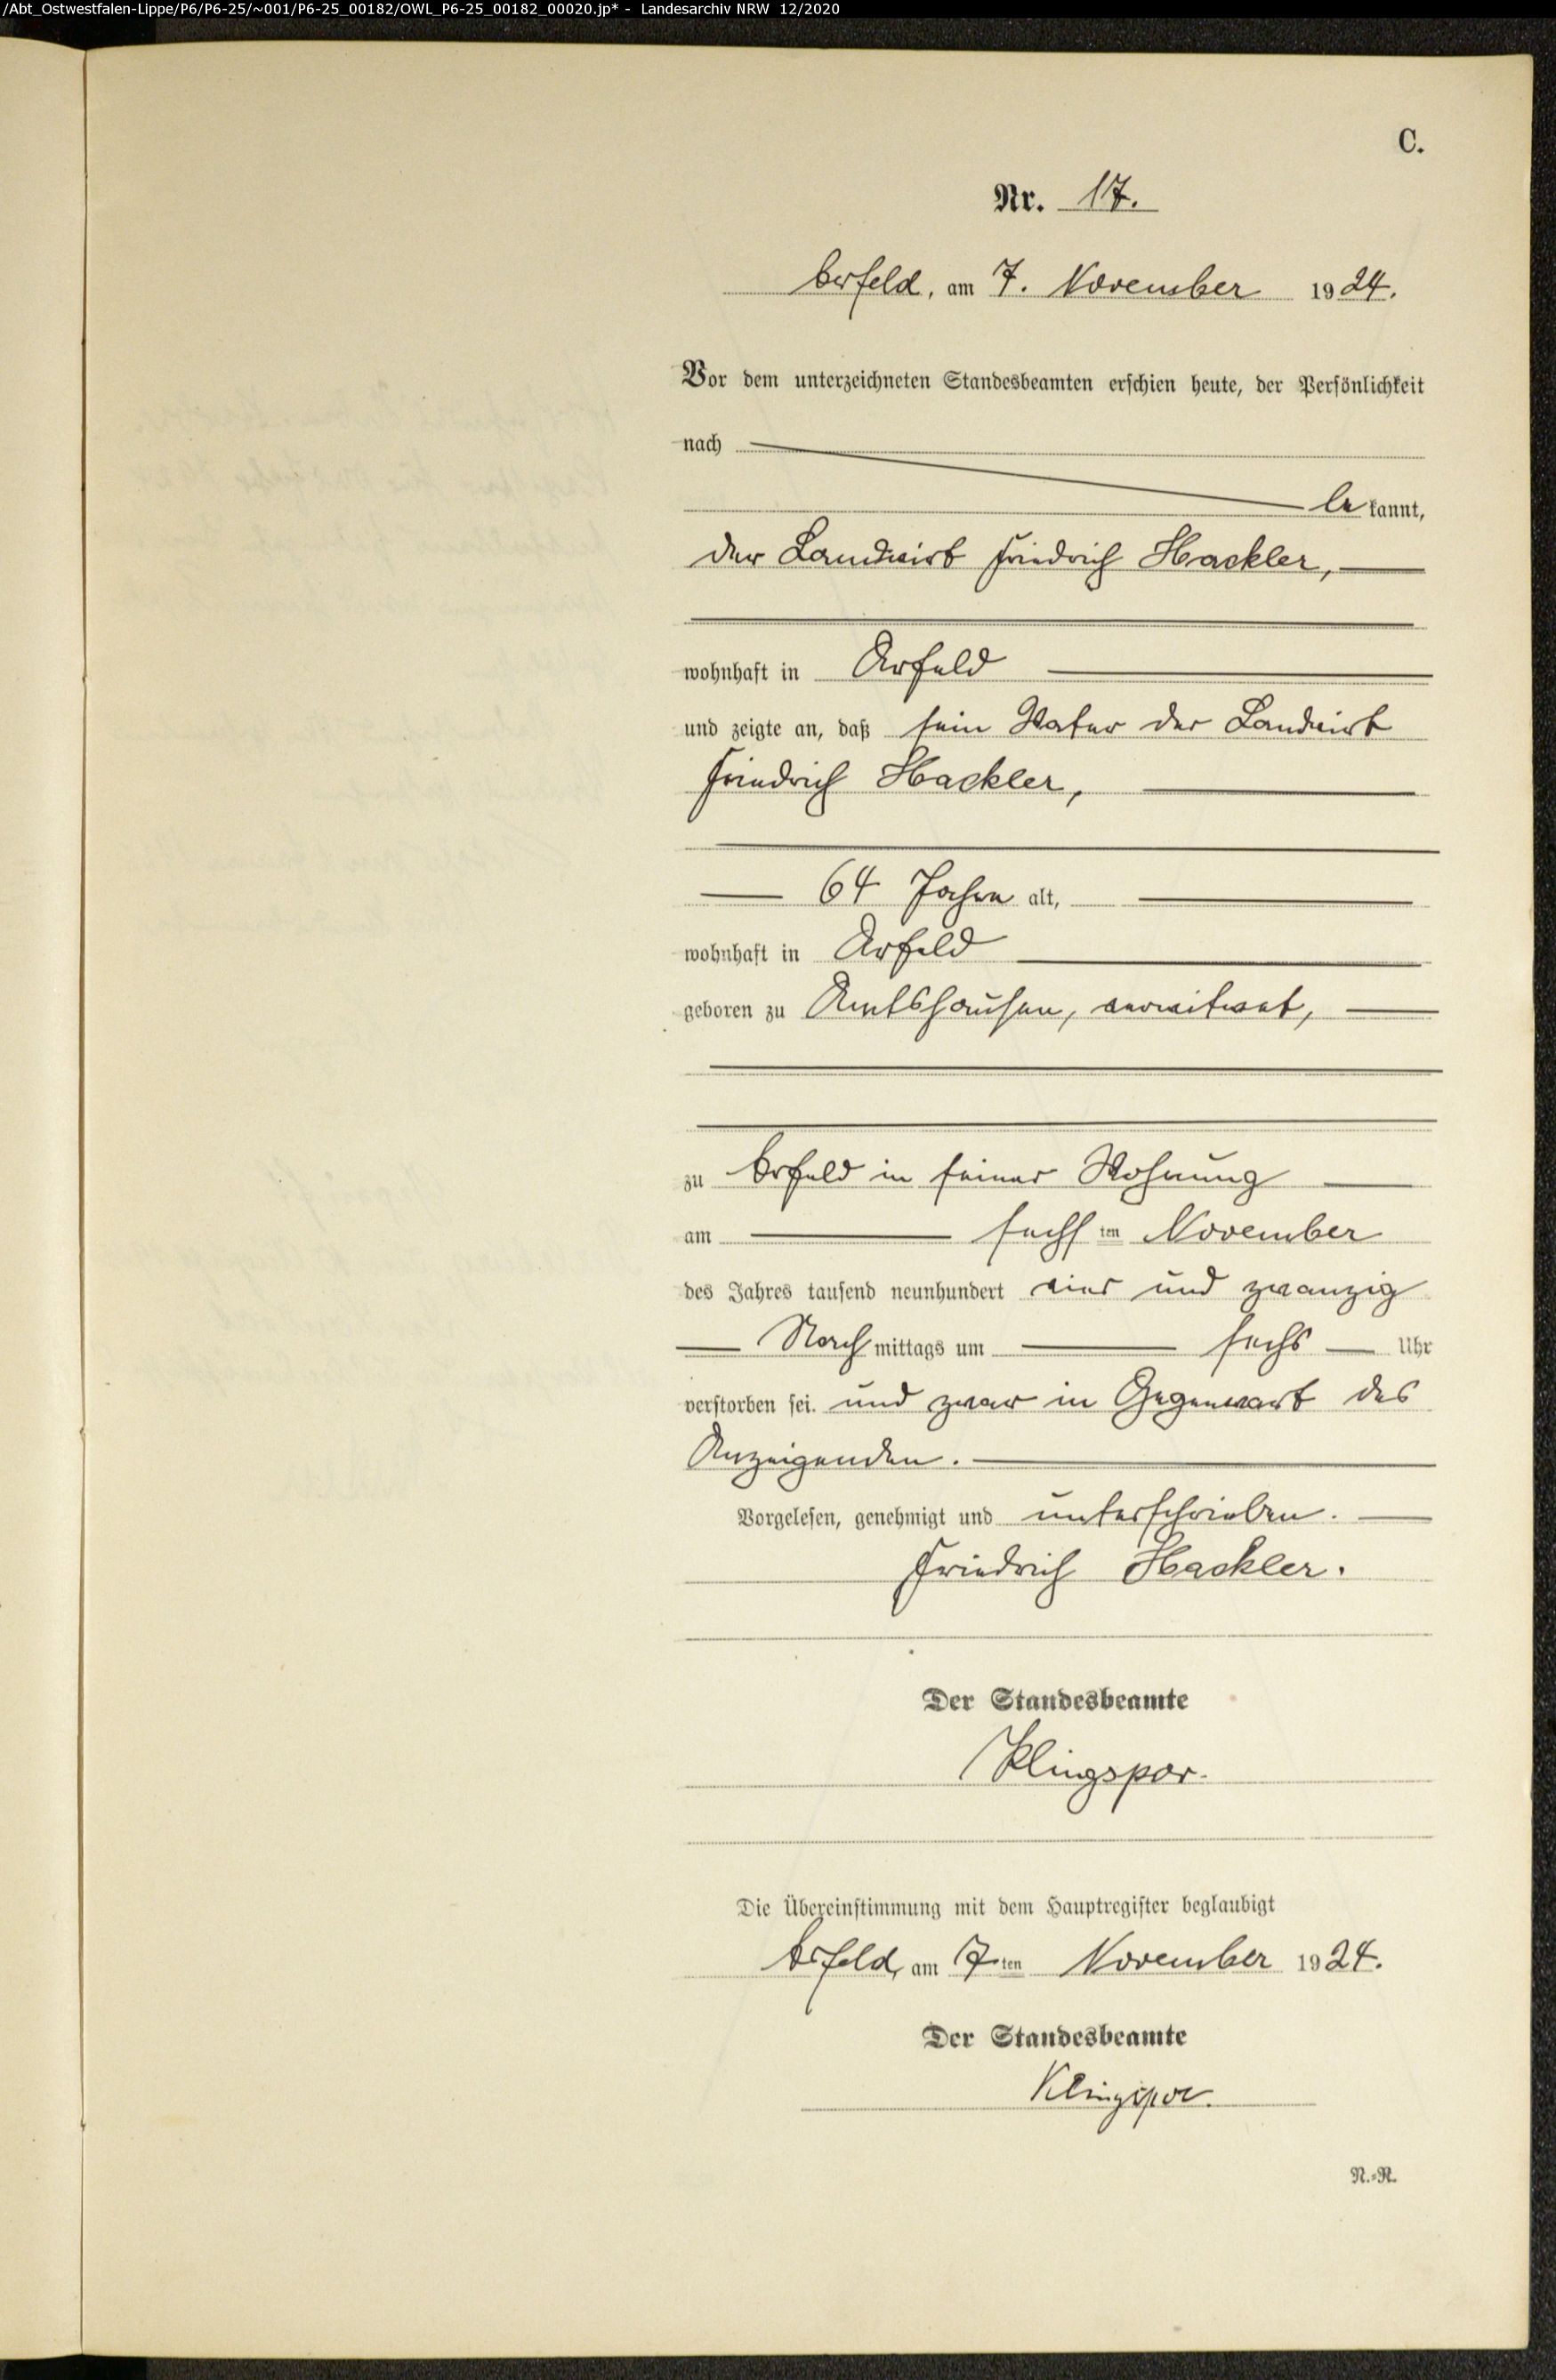 /Abt_Ostwestfalen-Lippe/P6/P6-25/~001/P6-25_00182/OWL_P6-25_00182_00020.jp* - Landesarchiv NRW 12/2020
C.
Nr. 17.
Arfeld, am 7. November 1924.
Vor dem unterzeichneten Standesbeamten erschien heute, der Persönlichkeit
nach
be kannt,
der Landwirt Friedrich Hackler,
wohnhaft in Arfeld
und zeigte an, daß sein Vater der Landwirt
Friedrich Hackler,
64 Jahre alt,
wohnhaft in Arfeld
geboren zu Amtshausen, verwitwet,
zu Arfeld in seiner Wohnung
am sechs ten November
des Jahres tausend neunhundert vier und zwanzig
Nach mittags um sechs Uhr
verstorben sei. und zwar in Gegenwart des
Anzeigenden.
Vorgelesen, genehmigt und unterschrieben.
Friedrich Hackler.
Der Standesbeamte
Klingspor.
Die Übereinstimmung mit dem Hauptregister beglaubigt
Arfeld, am 7ten November 1924.
Der Standesbeamte
Klingspor.
N.=R.